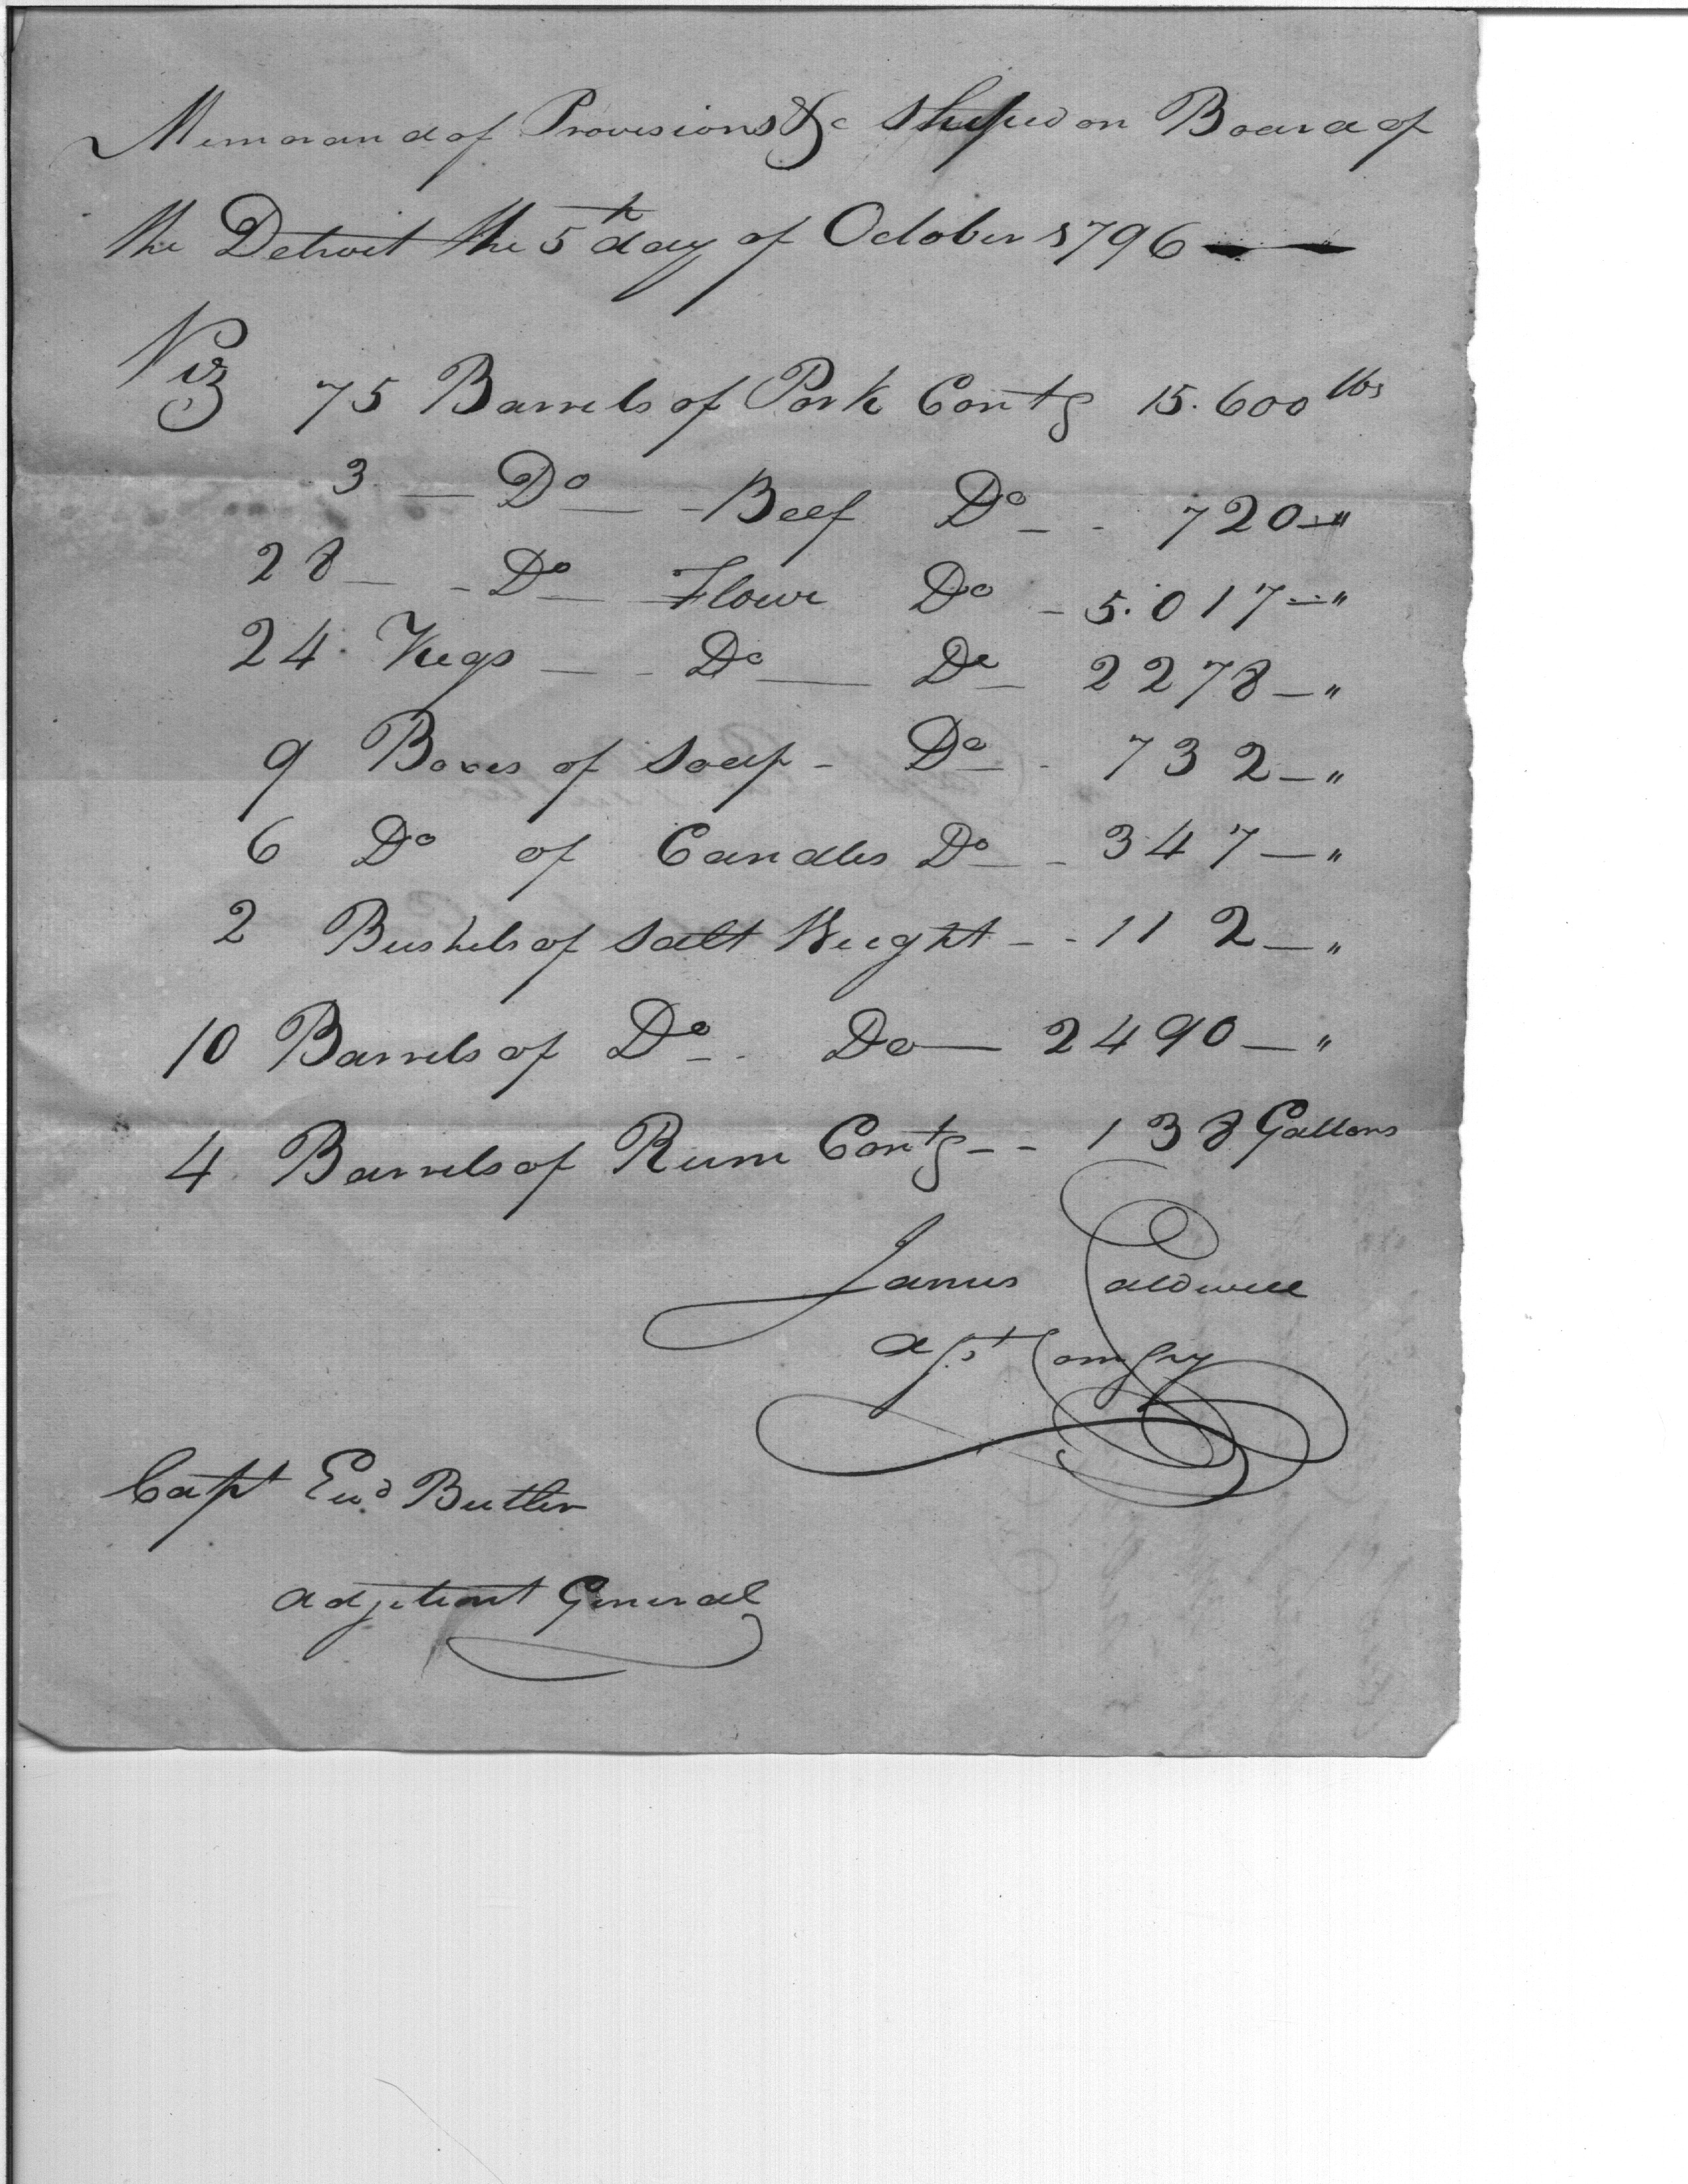 Memorand of Provisions &c Shiped on Board of
the Detroit the 5th day of October 1796
Viz 75 Barrels of Pork Contg 15.600 lbs
3 — Do — - Beef Do - - 720 — "
28 — - Do — Flour Do - 5.017 — "
24 Kegs — - Do — Do — 2278 — "
9 Boxes of Soap - Do - 732 — "
6 Do of Candles Do — - 347 — "
2 Bushels of Salt Weight - - 112 — "
10 Barrels of Do - - Do — 2490 — "
4 Barrels of Rum Contg - - 138 Gallons
James Caldwell
Capt Edwd Butler
Adjutant General